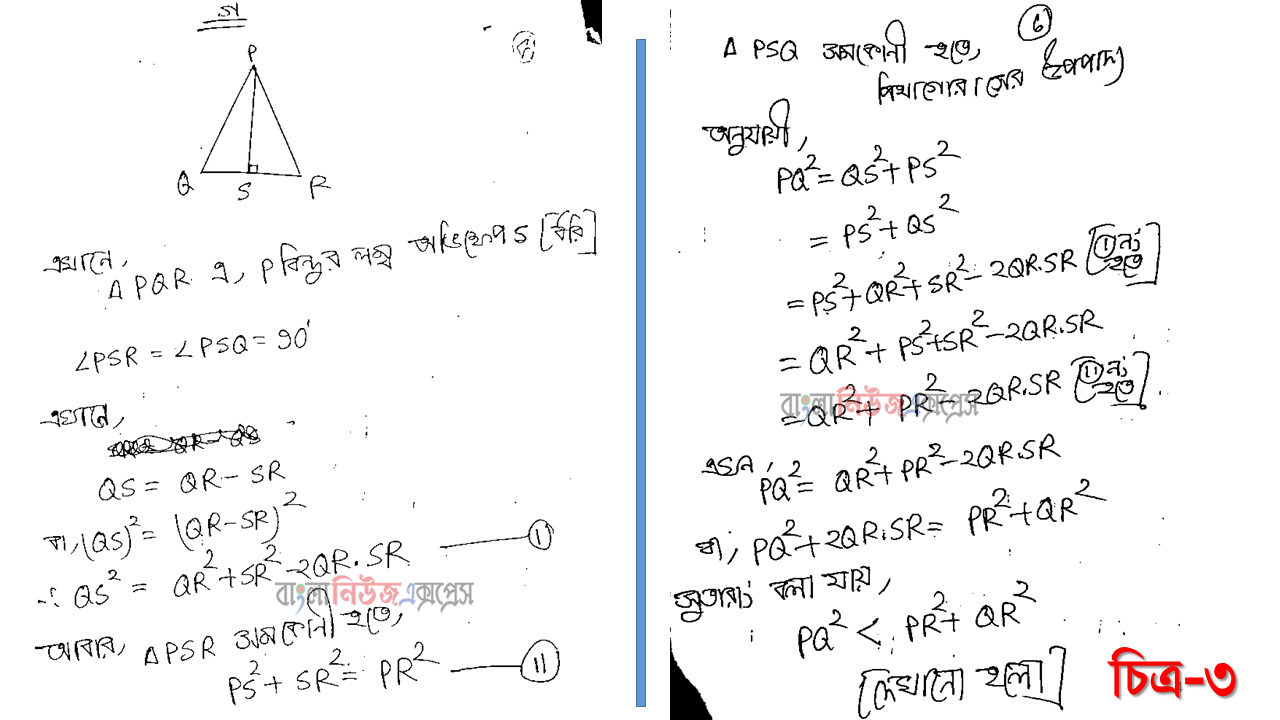 P
Q
S
R
এখানে,
Δ PQR এ, P বিন্দুর লম্ব অভিক্ষেপ S [ধরি]
∠PSR = ∠PSQ = 90°
এখানে,
QS = QR - SR
বা, (QS)² = (QR - SR)²
∴ QS² = QR² + SR² - 2QR.SR ——— (i)
বাংলা নিউজ এক্সপ্রেস
আবার, Δ PSR সমকোণী হতে,
PS² + SR² = PR² ——— (ii)
(6)
Δ PSQ সমকোণী হতে,
পিথাগোরাসের উপপাদ্য
অনুযায়ী,
PQ² = QS² + PS²
= PS² + QS²
= PS² + QR² + SR² - 2QR.SR [(i) নং হতে]
= QR² + PS² + SR² - 2QR.SR
= QR² + PR² - 2QR.SR [(ii) নং হতে]
বাংলা নিউজ এক্সপ্রেস
এখন, PQ² = QR² + PR² - 2QR.SR
বা, PQ² + 2QR.SR = PR² + QR²
সুতারাং বলা যায়,
PQ² < PR² + QR²
[দেখানো হলো]
চিত্র-৩